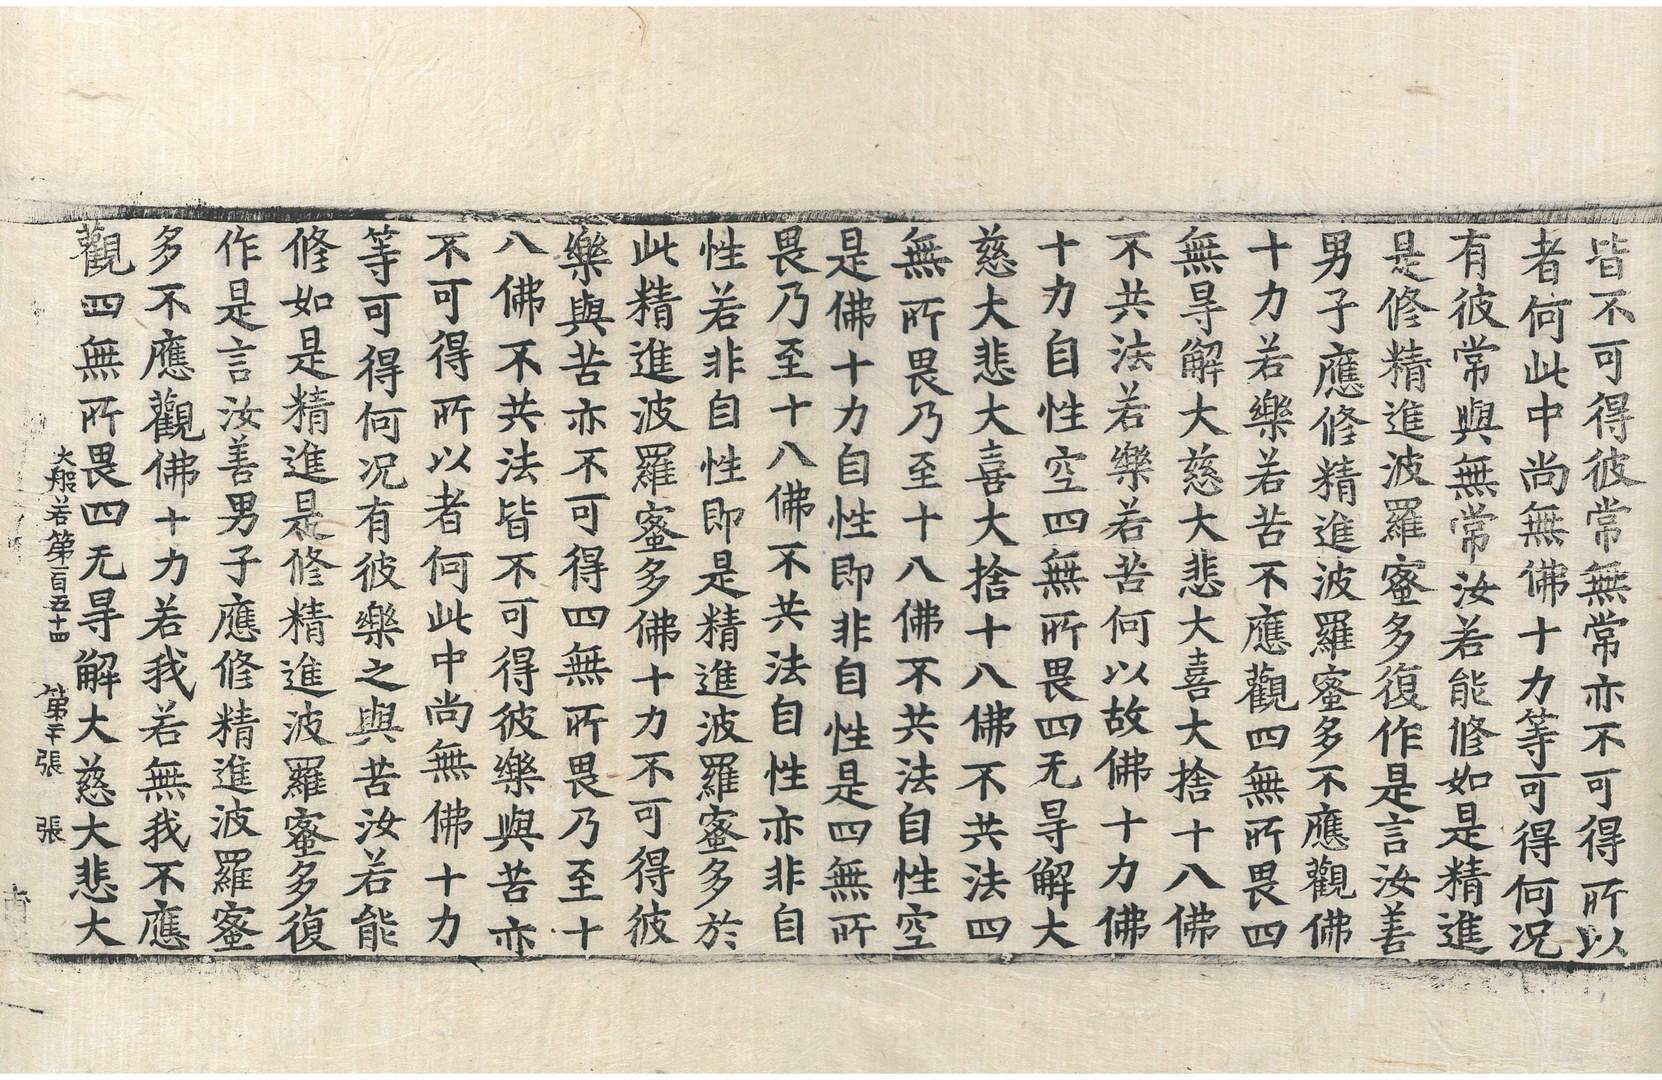 皆不可得彼常無常亦不可得所以
者何此中尚無佛十力等可得何况
有彼常與無常汝若能修如是精進
是修精進波羅蜜多復作是言汝善
男子應修精進波羅蜜多不應觀佛
十力若樂若苦不應觀四無所畏四
無㝵解大慈大悲大喜大捨十八佛
不共法若樂若苦何以故佛十力佛
十力自性空四無所畏四无㝵解大
慈大悲大喜大捨十八佛不共法四
無所畏乃至十八佛不共法自性空
是佛十力自性即非自性是四無所
畏乃至十八佛不共法自性亦非自
性若非自性即是精進波羅蜜多於
此精進波羅蜜多佛十力不可得彼
樂與苦亦不可得四無所畏乃至十
八佛不共法皆不可得彼樂與苦亦
不可得所以者何此中尚無佛十力
等可得何况有彼樂之與苦汝若能
修如是精進是修精進波羅蜜多復
作是言汝善男子應修精進波羅蜜
多不應觀佛十力若我若無我不應
觀四無所畏四无㝵解大慈大悲大
大般若第一百五十四 第二十張 張